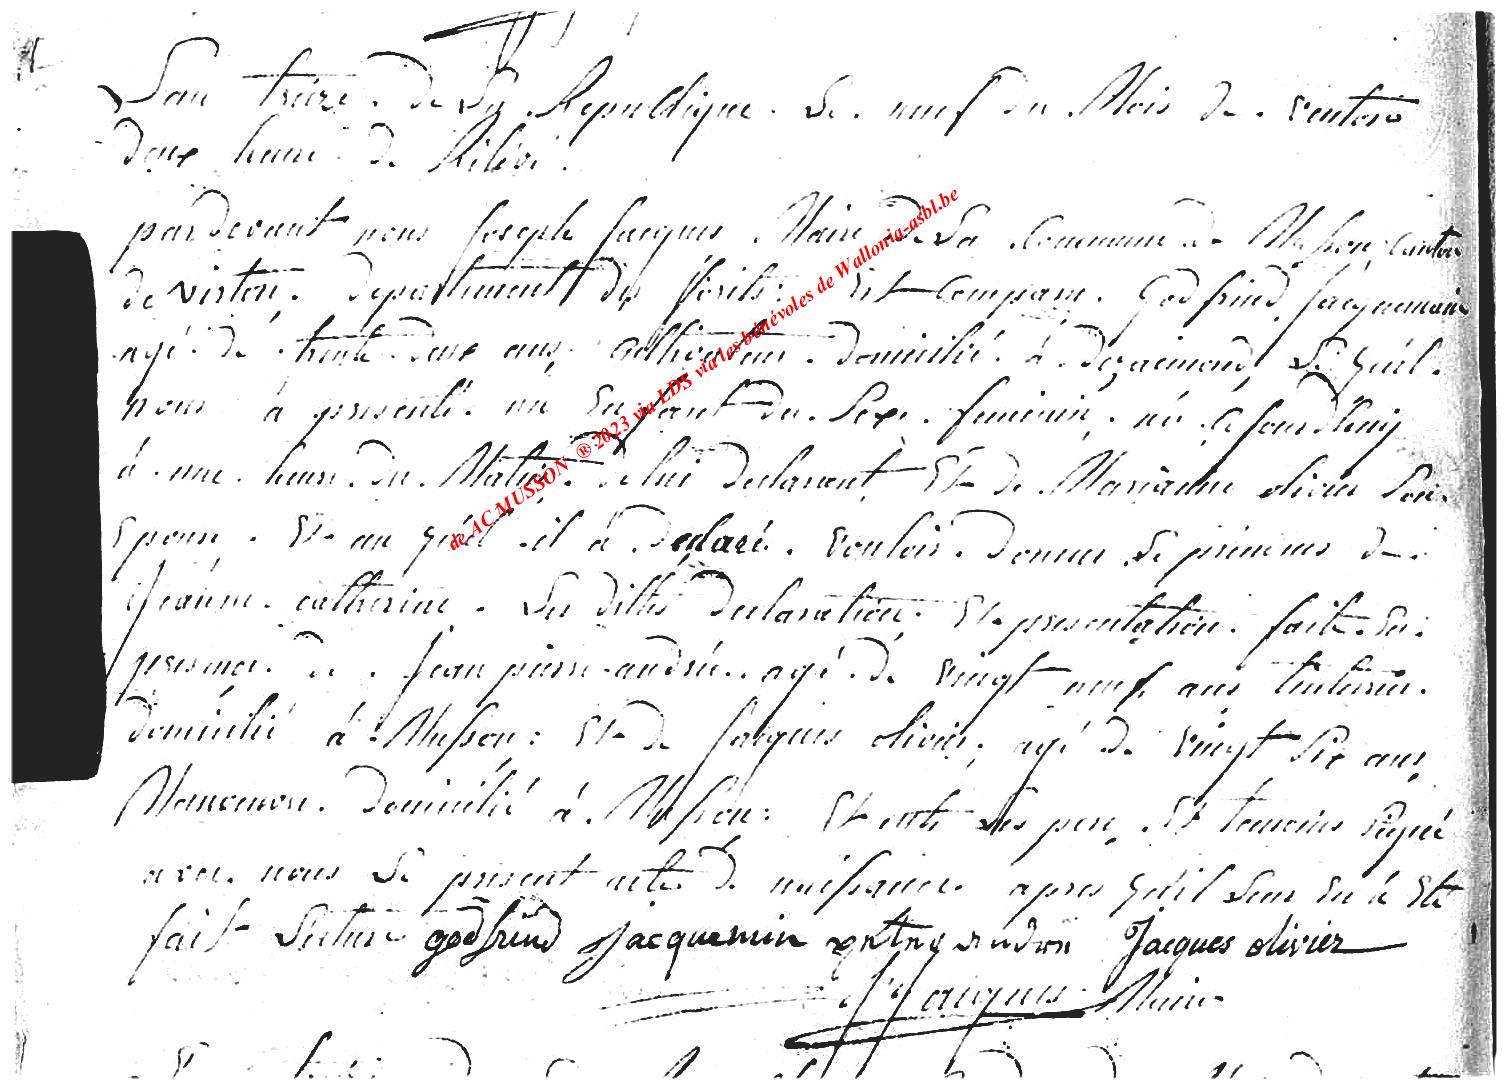 L'an treize de La Republique Le neuf du Mois de ventose
deux heure de Rélévé.
pardevant nous Joseph Jacques Maire de La Commune de Musson canton
de virton, departement des forêts: Est Comparu Godfrind Jacquemain
agé de trente deux ans cultivateur domicilié à Le quel
nous à presenté un Enfant du Sexe feminin, né ce jourd'huy
à une heure du Matin, de lui declarant Et de Marianne olivier Son
Epouse. Et au quel il à declaré vouloir donner Le prénoms de
Jeanne catherine. Les dittes declaration Et presentation fait En
presence de Jean pierre andré agé de vingt neuf ans teinturier
domicilié à Musson: Et de Jacques olivier, agé de vingt Six ans
domicilié à Musson: Et ont Les pere Et temoins Signé
avec nous Le present acte de naissance apres qu'il Leur En à Eté
fait Lecture godfrind Jacquemin andré Jacques olivier
Jacques Maire
de ACMUSSON ® 2023 via LDS via les bénévoles de Wallonia-asbl.be